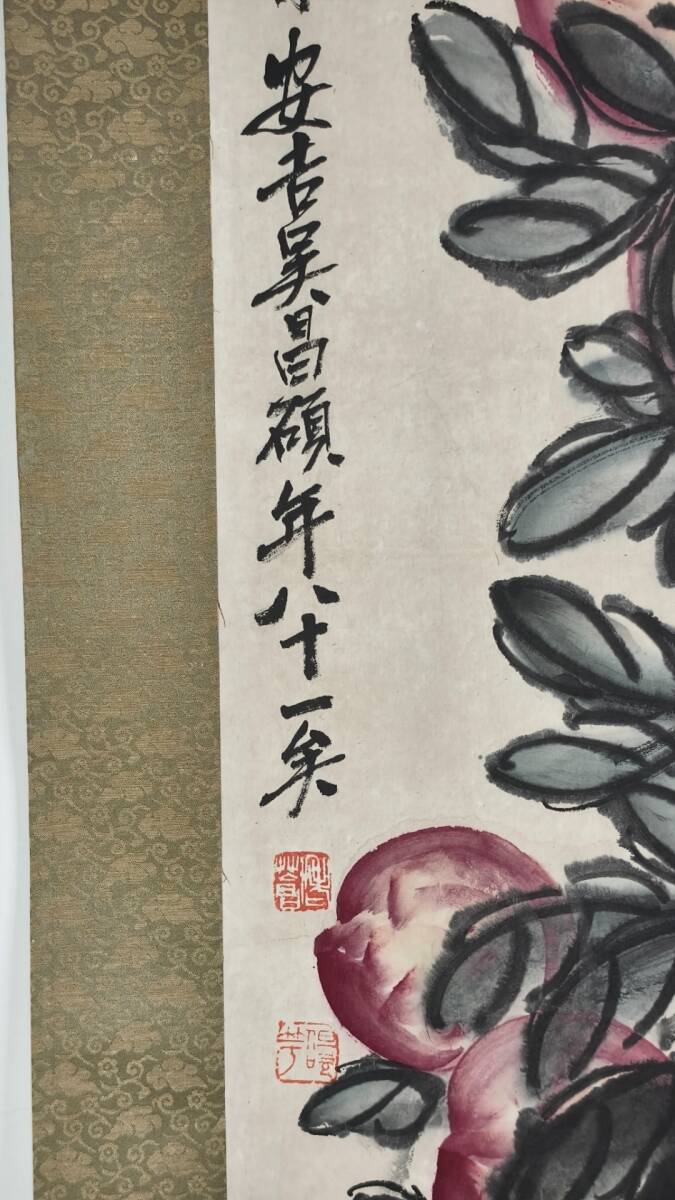 安吉吴昌碩年八十一矣